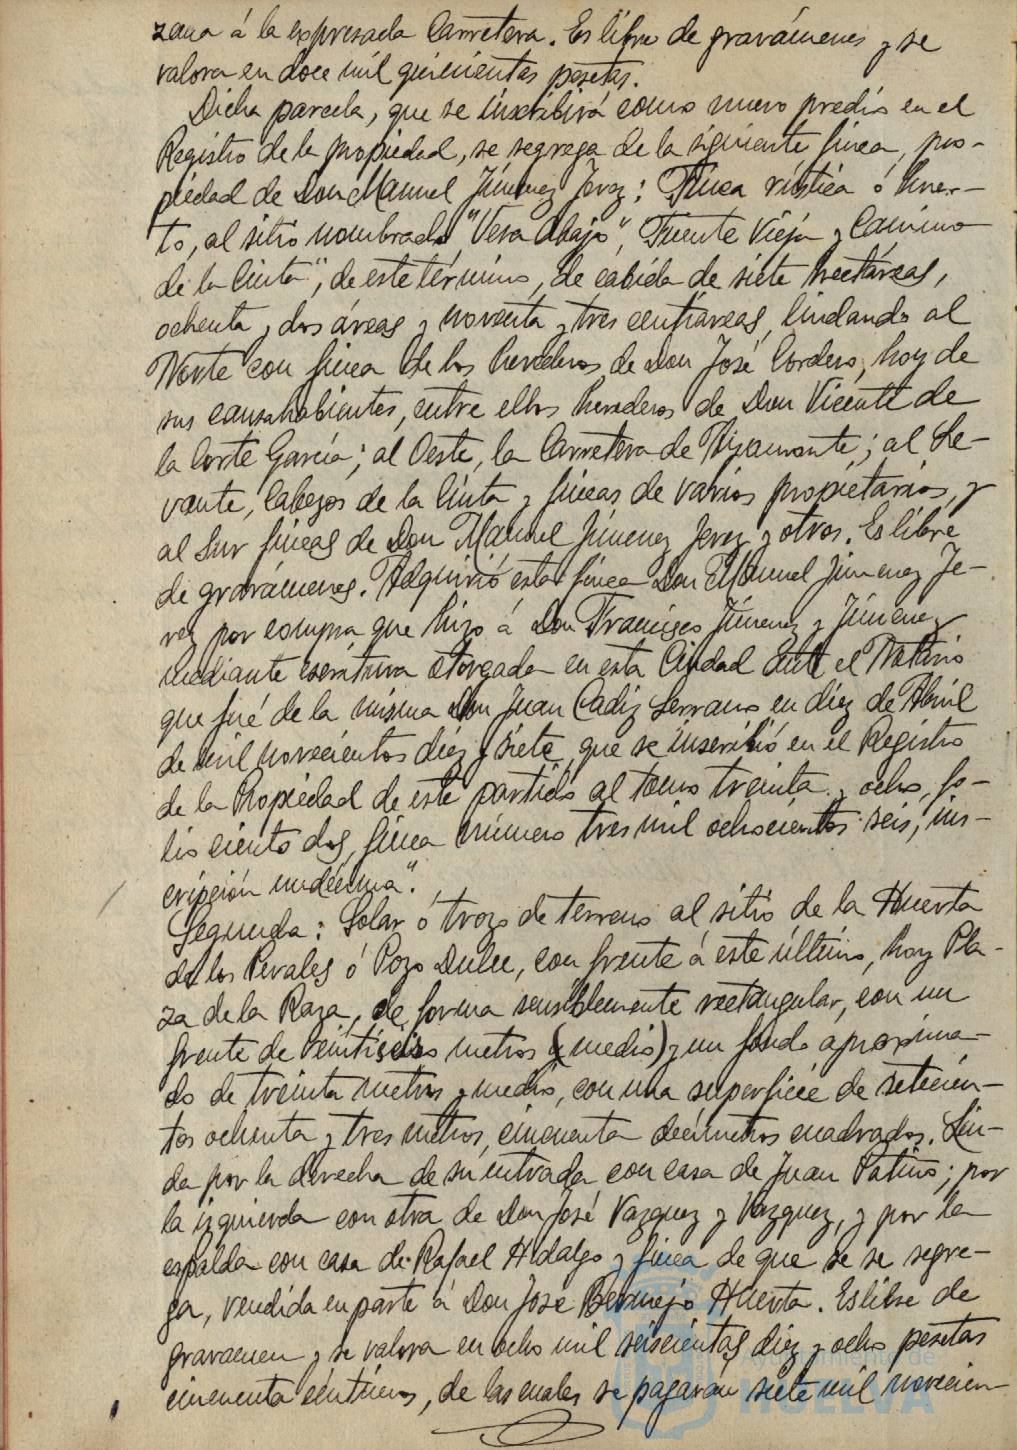 zana á la expresada Carretera. Es libre de gravámenes y se
valora en doce mil quinientas pesetas.
Dicha parcela, que se inscribirá como nuevo predio en el
Registro de la propiedad, se segrega de la siguiente finca, pro-
piedad de Don Manuel Jiménez Jerez: "Finca rústica ó huer-
to, al sitio nombrado "Vera Abajo", Fuente Vieja y Camino
de la Cinta", de este término, de cabida de siete hectáreas,
ochenta y dos áreas y noventa y tres centiáreas, lindando al
Norte con finca de los herederos de Don José Cordero, hoy de
sus causahabientes, entre ellos herederos de Don Vicente de
la Corte García; al Oeste, la Carretera de Ayamonte; al Le-
vante, Cabezos de la Cinta y fincas de varios propietarios, y
al Sur fincas de Don Manuel Jiménez Jerez y otros. Es libre
de gravámenes. Adquirió esta finca Don Manuel Jiménez Je-
rez por compra que hizo á Don Francisco Jiménez y Jiménez
mediante escritura otorgada en esta Ciudad ante el Notario
que fué de la misma Don Juan Cadiz Serrano en diez de Abril
de mil novecientos diez y siete, que se inscribió en el Registro
de la Propiedad de este partido al tomo treinta y ocho, fo-
lio ciento dos, finca número tres mil ochocientos seis, ins-
cripción undécima".
Segunda: Solar ó trozo de terreno al sitio de la Huerta
de los Perales ó Pozo Dulce, con frente á este último, hoy Pla-
za de la Raza, de forma sensiblemente rectangular, con un
frente de veintiseis metros (y medio) y un fondo aproxima-
do de treinta metros y medio, con una superficie de setecien-
tos ochenta y tres metros, cincuenta decímetros cuadrados. Lin-
da por la derecha de su entrada con casa de Juan Patiño; por
la izquierda con otra de Don José Vazquez y Vazquez, y por la
espalda con casa de Rafael Hidalgo y finca de que se se segre-
ga, vendida en parte á Don José Bermejo Huerta. Es libre de
gravamen y se valora en ocho mil seiscientas diez y ocho pesetas
cincuenta céntimos, de las cuales se pagarán siete mil novecien-
Ayuntamiento de
HUELVA